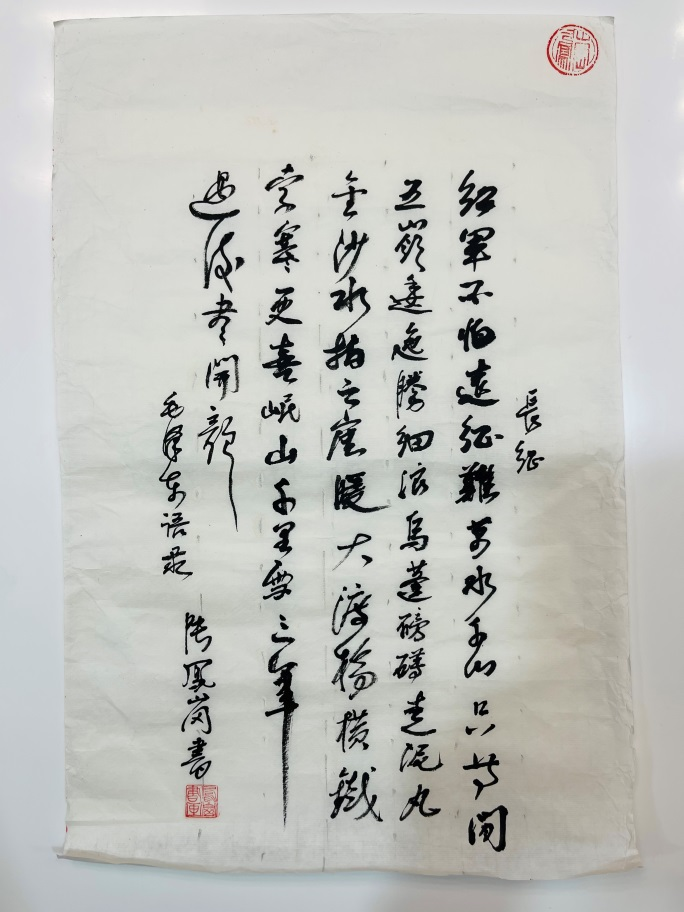 長征
紅軍不怕遠征難萬水千山只等閑
五嶺逶迤騰細浪烏蒙磅礴走泥丸
金沙水拍云崖暖大渡橋橫鐵
索寒更喜岷山千里雪三軍
過後盡開顏
毛澤東语录
鳳崗書